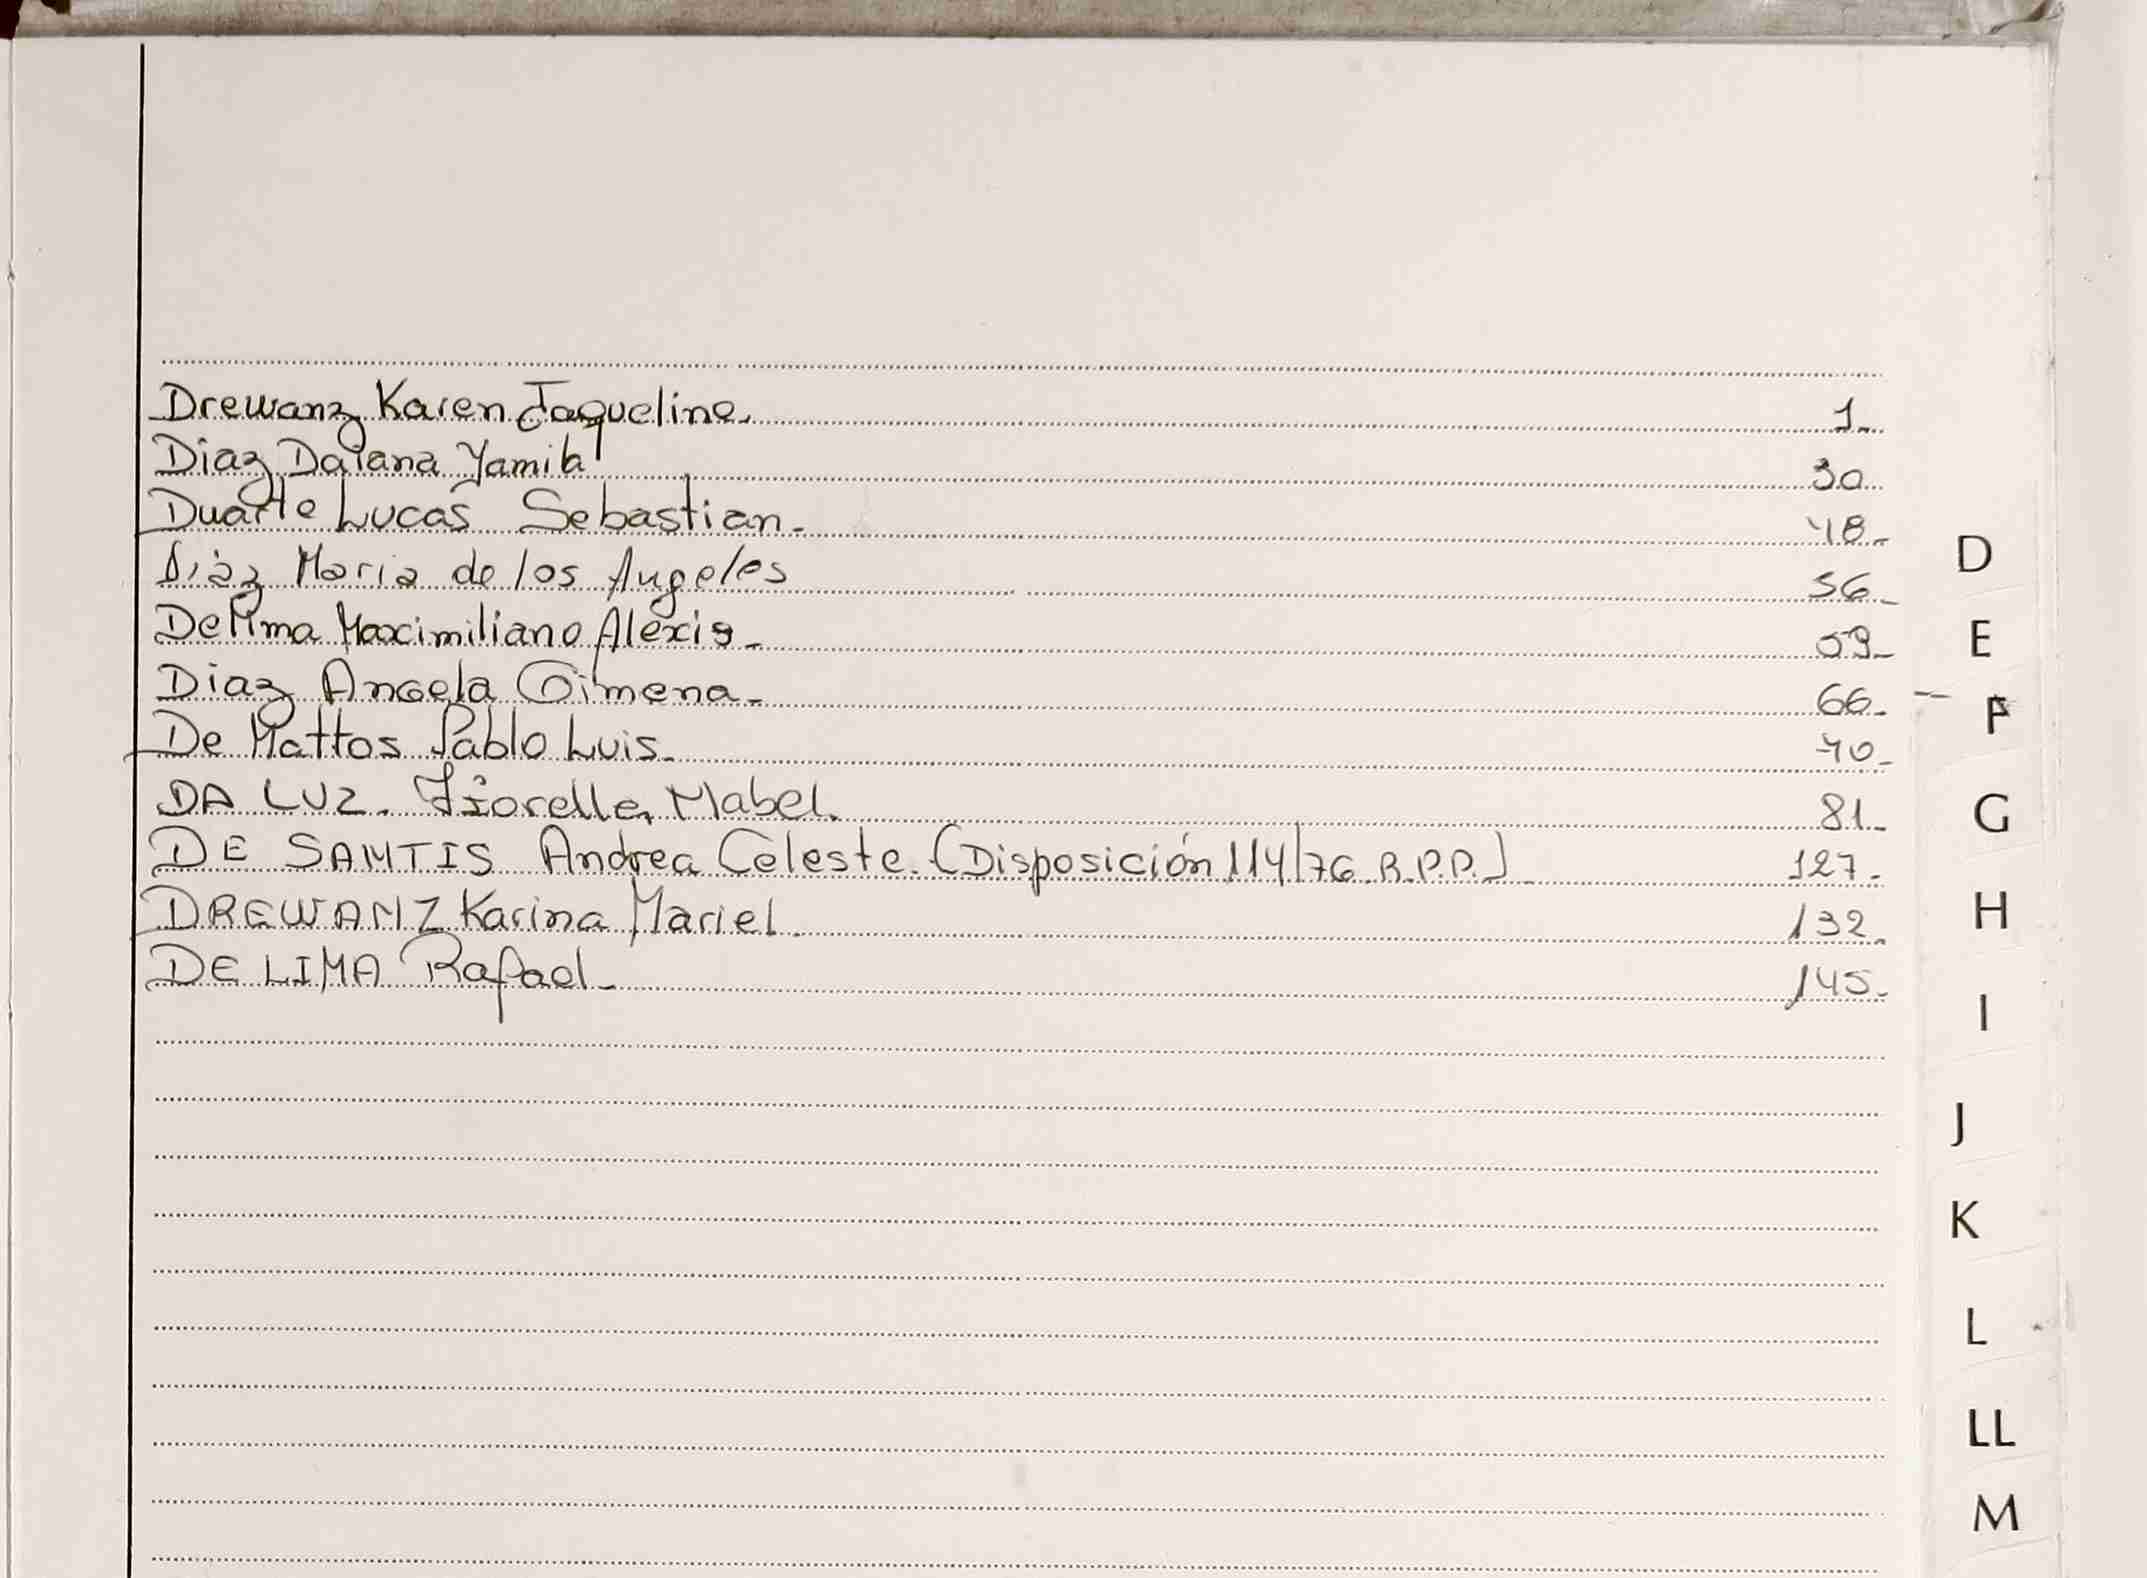 Drewanz Karen Jaqueline. 1.
Diaz Daiana Yamila 30
Duarte Lucas Sebastian. 48.
Diaz Maria de los Angeles 56.
De lima Maximiliano Alexis. 59.
Diaz Angela Gimena. 66.
De Mattos Pablo Luis. 70.
DA LUZ. Fiorella Mabel. 81.
DE SANTIS Andrea Celeste. (Disposición 114/76 R.P.P.) 127.
DREWANZ Karina Mariel. 132.
DE LIMA Rafael. 145.
D
E
F
G
H
I
J
K
L
LL
M